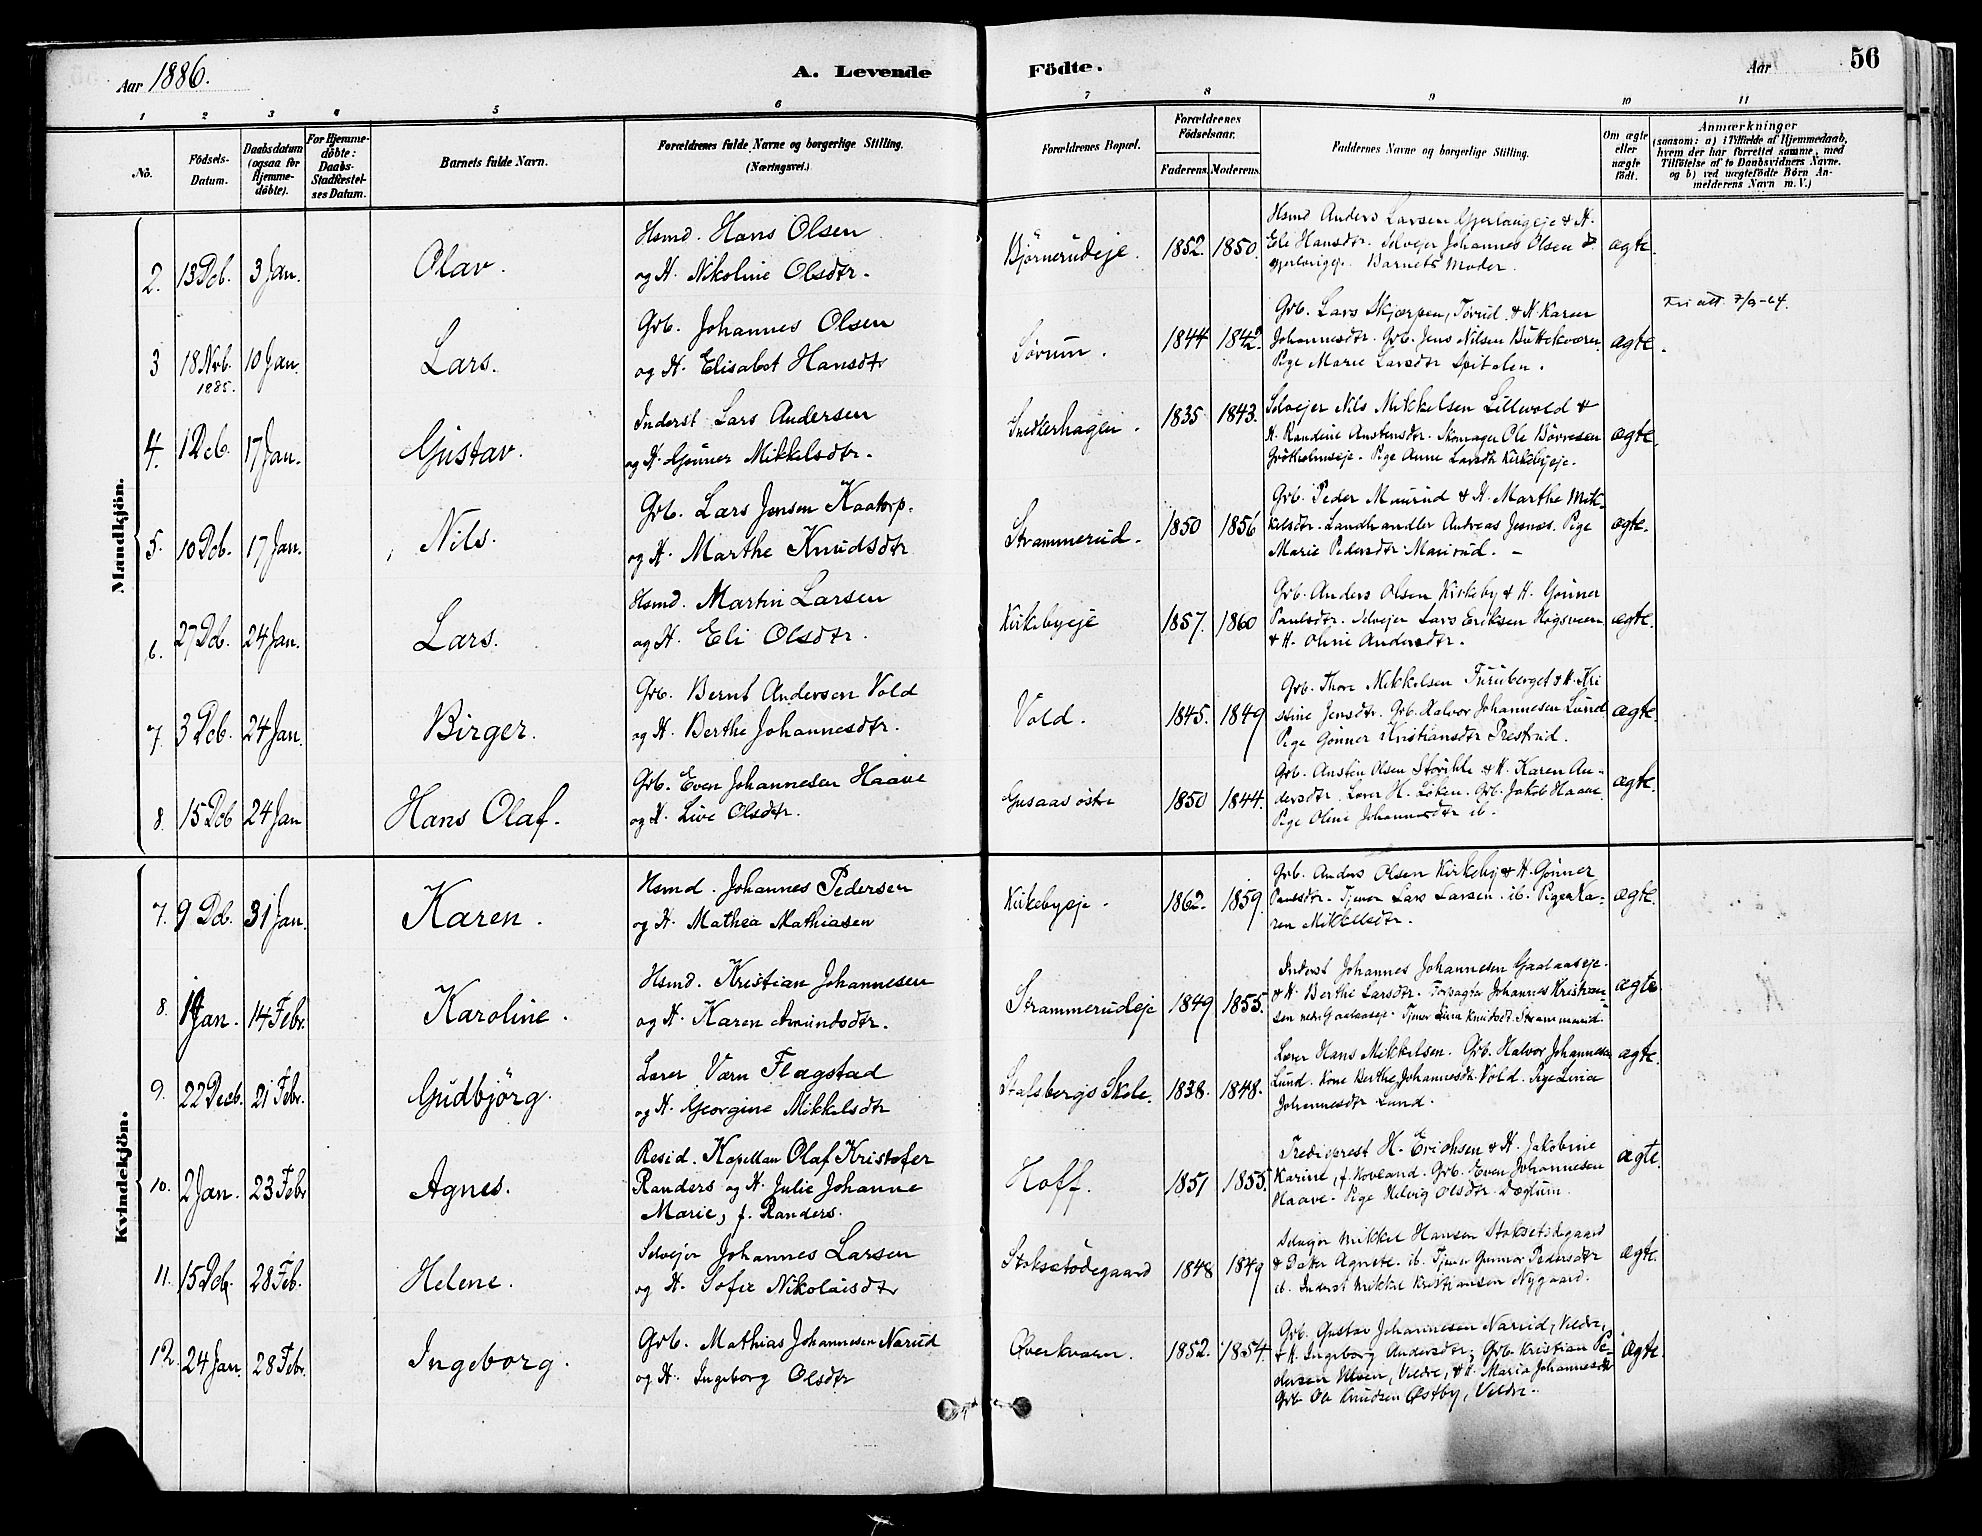 Aar 1886.
A. Levende Födte.
Aar
56
1 2 3 4 5 6 7 8 9 10 11
No.
Födsels-
Datum.
Daabsdatum
(ogsaa for
Hjemme-
döbte).
For Hjemme-
döbte:
Daabs-
Stadfæstel-
ses Datum.
Barnets fulde Navn.
Forældrenes fulde Navne og borgerlige Stilling.
(Næringsvei.)
Forældrenes Bopæl.
Forældrenes
Födselsaar.
Faderens. Moderens.
Faddernes Navne og borgerlige Stilling.
Om ægte
eller
uægte
födt.
Anmærkninger
(saasom: a) i Tilfælde af Hjemmedaab,
hvem der har forrettet samme, med
Tilföielse af to Daabsvidners Navne.
og b) ved uægtefödte Börn An-
melderens Navn m. V.)
Mandkjön.
2. 13 Dcb. 3 Jan.
Olav.
Hsmd. Hans Olsen
og H. Nikoline Olsdtr.
Bjørnerudeje.
1852. 1850.
Hsmd Anders Larsen Gjerlaugeje & H.
Eli Hansdtr. Selvejer Johannes Olsen
Barnets Moder.
ægte.
3 18 Nvb. 10 Jan.
1885.
Lars.
Grb. Johannes Olsen
og H. Elisabet Hansdtr
Sørum.
1844 1842.
Grb. Lars Skjærpen, Tørud. & H. Karen
Johannesdtr. Grb. Jens Nilsen Büttekværn
Pige Marie Larsdtr Spitalen.
ægte.
Fri att. 7/9-64.
4. 1 Dcb. 17 Jan.
Gustav.
Inderst Lars Andersen
og H. Gønner Mikkelsdtr.
Snedkerhagen.
1835 1843.
Selvejer Nils Mikkelsen Lillevold &
H. Randine Anstensdtr. Skomager Ole Børresen
Pige Anne Larsdtr Kirkebyeje.
ægte.
5. 10 Dcb. 17 Jan.
Nils.
Grb. Lars Jensen Kaatorp.
og H. Marthe Knudsdtr
Strammerud.
1850 1856
Grb. Peder Maurud & H. Marthe Mik-
kelsdtr. Landhandler Andreas Jesnes. Pige
Marie Pedersdtr Maurud.
ægte.
6. 27 Dcb. 24 Jan.
Lars.
Hsmd. Martin Larsen
og H. Eli Olsdtr.
Kirkebyeje
1857. 1860
Grb. Anders Olsen Kirkeby & H. Gønner
Paulsdtr. Selvejer Lars Eriksen Høgsveen
& H. Oline Andersdtr.
ægte.
7. 3 Dcb. 24 Jan.
Birger.
Grb. Bernt Andersen Vold
og H. Berthe Johannesdtr.
Vold.
1845. 1849
Grb. Thore Mikkelsen Furuberget & H. Kri
stine Jensdtr. Grb. Halvor Johannesen Lund
Pige Gønner Kristiansdtr Prestrud.
ægte.
8. 15 Dcb 24 Jan
Hans Olaf.
Grb. Even Johannesen Haave
og H. Live Olsdtr.
Gusaas østre
1850 1844.
Grb. Ansten Olsen & H. Karen An-
dersdtr. Lærer H. Løken. Grb. Jakob Haave.
Pige Oline Johannesdtr ib.
ægte.
Kvindekjön.
7. 9 Dcb. 31 Jan.
Karen.
Hsmd. Johannes Pedersen
og H. Mathea Mathiasen
Kirkebyeje.
1862. 1859.
Grb. Anders Olsen Kirkeby & H. Gønner
Paulsdtr. Tjener Lars Larsen. ib. Pige Ka-
ren Mikkelsdtr.
ægte.
8. 1 Jan. 14 Febr.
Karoline.
Hsmd. Kristian Johannesen
og H. Karen Amundsdtr.
Strammerudeje
1849 1855.
Inderst Johannes Johannesen Gaalaaseje.
& H. Berthe Larsdtr. Forpagter Johannes Kristian-
sen nedr Gaalaaseje. Tjener Lina Knudsdt. Strammerud.
ægte
9. 22 Decb. 21 Febr.
Gudbjörg.
Lærer Værn Flagstad
og H. Georgine Mikkelsdtr
Stafsbergs Skole.
1838. 1848.
Lærer Hans Mikkelsen. Grb. Halvor Johannesen
Lund. Kone Berthe Johannesdtr Vold. Pige Lovise
Johannesdtr Lund.
ægte.
10. 2 Jan. 23 Febr
Agnes.
Resid. Kapellan Olaf Kristofer
Randers og H. Julie Johanne
Marie, f. Randers.
Hoff.
1851 1855.
Frediderest H. Erichsen & H. Jakobine
Karine, f. Hovland. Grb. Even Johannesen
Haave. Pige Helvig Olsdtr. Døglum.
ægte.
11. 15 Dcb. 28 Feb.
Helene.
Selvejer Johannes Larsen
og H. Sofie Nikolaisdtr
Stoksetødegaard
1848 1849
Selvejer Mikkel Hansen Stoksetødegaard
& Datter Agnete. ib. Tjener Gunnor Pedersdtr
ib. Inderst Mikkel Kristiansen Nygaard.
ægte.
12. 24 Jan. 28 Febr.
Ingeborg.
Grb. Mathias Johannesen Narud
og H. Ingeborg Olsdtr
Øverkværn.
1852. 1854.
Grb. Gustav Johannesen Narud, Veldre,
& H. Ingeborg Andersdtr, Grb. Kristian Pe-
dersen Ulven, Veldre, & H. Maria Johannesdtr
Grb Ole Knudsen Østby, Veldre.
ægte.